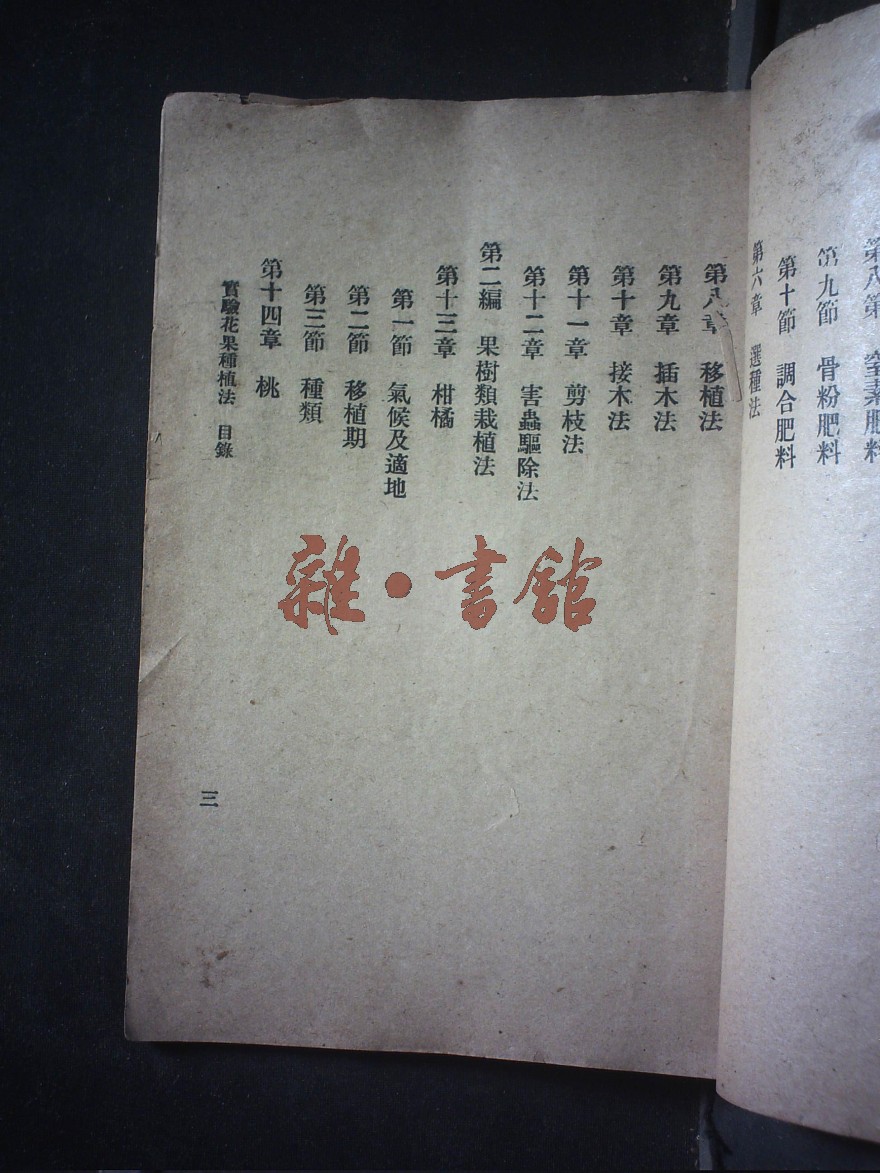 第九節　骨粉肥料
第十節　調合肥料
第六章　選種法
第八章　移植法
第九章　插木法
第十章　接木法
第十一章　剪枝法
第十二章　害蟲驅除法
第二編　果樹類栽植法
第十三章　柑橘
第一節　氣候及適地
第二節　移植期
第三節　種類
第十四章　桃
實驗花果種植法　目錄
三
雜·書館